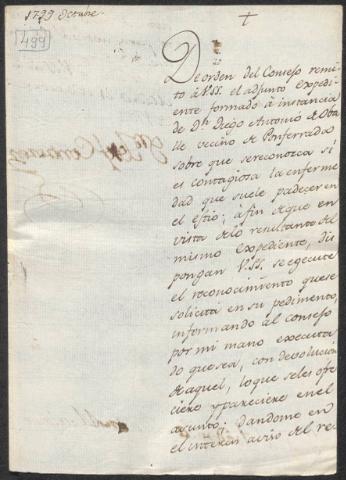 1799 Octubre.
499
De orden del Consejo remi
to à V.SS. el adjunto Expedi
ente formado à instancia
de Dn. Diego Antonio de
vecino de Ponferrada
sobre que sereconozca si
es contagiosa la enferme
dad que suele padecer en
el estio; à fin de que en
vista delo resultante del
mismo Expediente, dis
pongan V.SS. se egecute
el reconocimiento que se
solicita en su pedimento,
informando àl Consejo
por mi mano executa
do que sea, con devolucion
de aquel, lo que seles ofre
ciere y pareciere en el
asunto; dandome en
el interin aviso del re